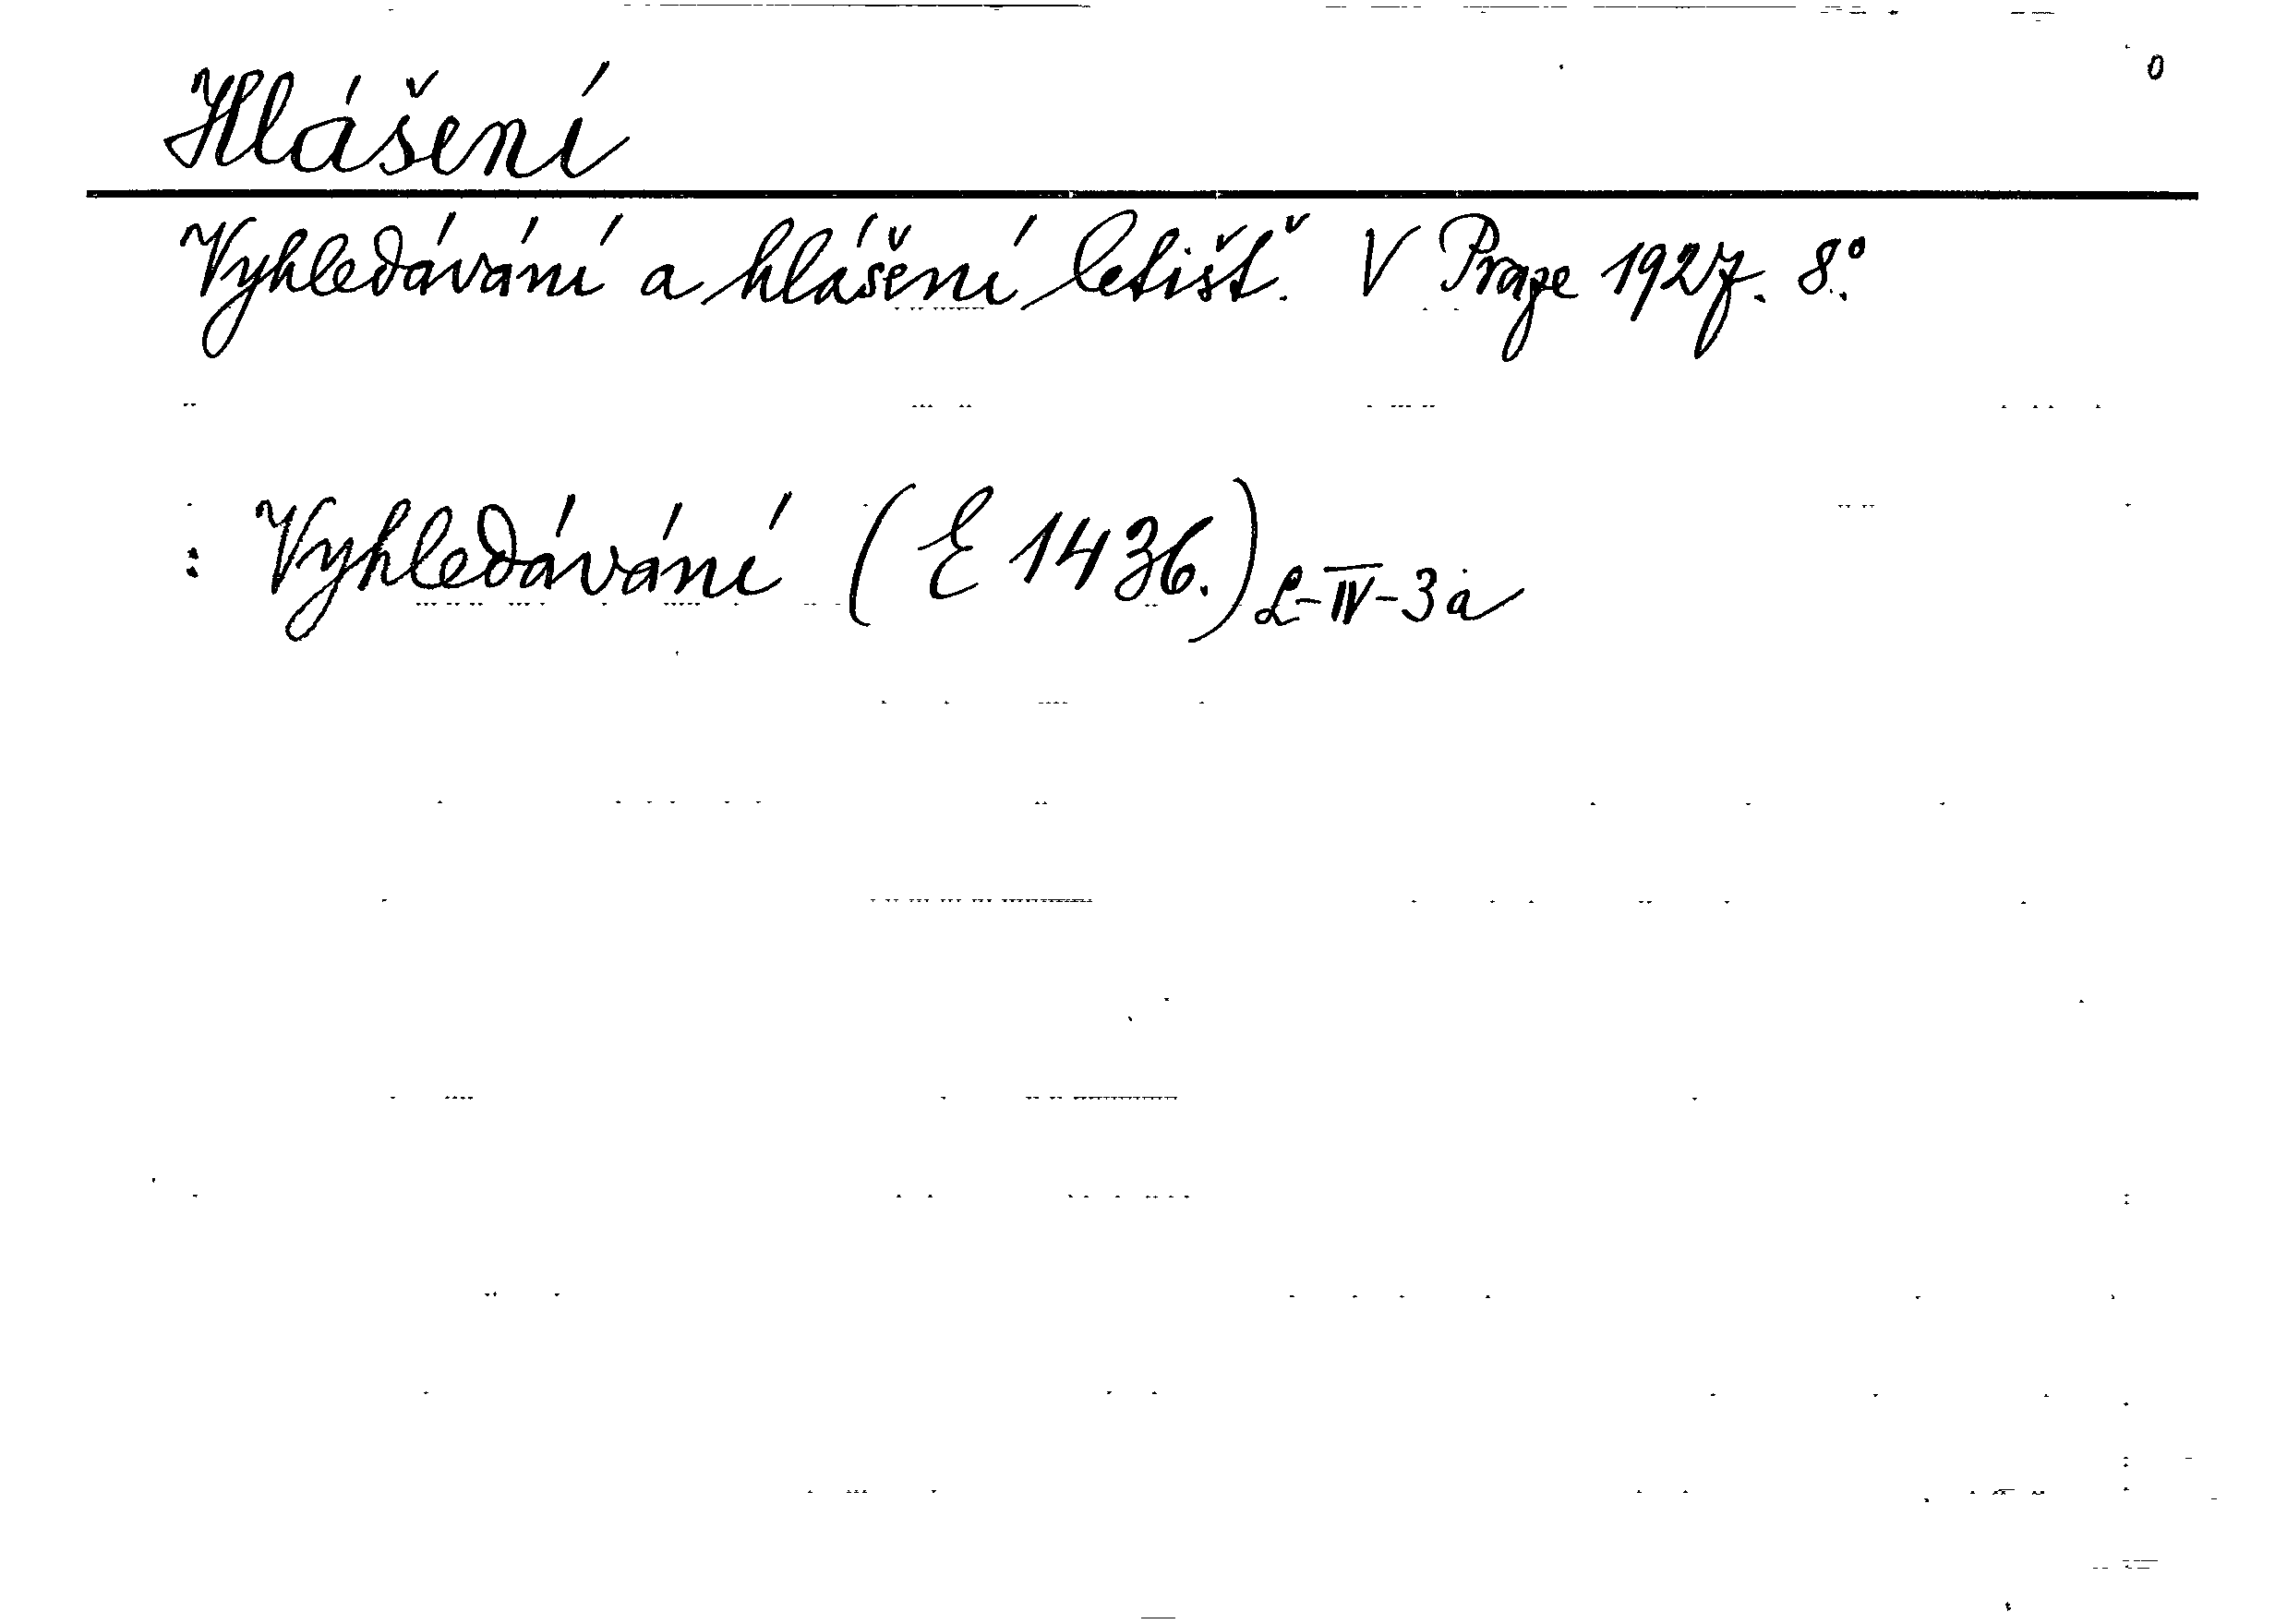 0
Hlášení
Vyhledávání a hlášení letišť. V Praze 1927. 8°.
: Vyhledávání (E 1436.) L-IV-3a